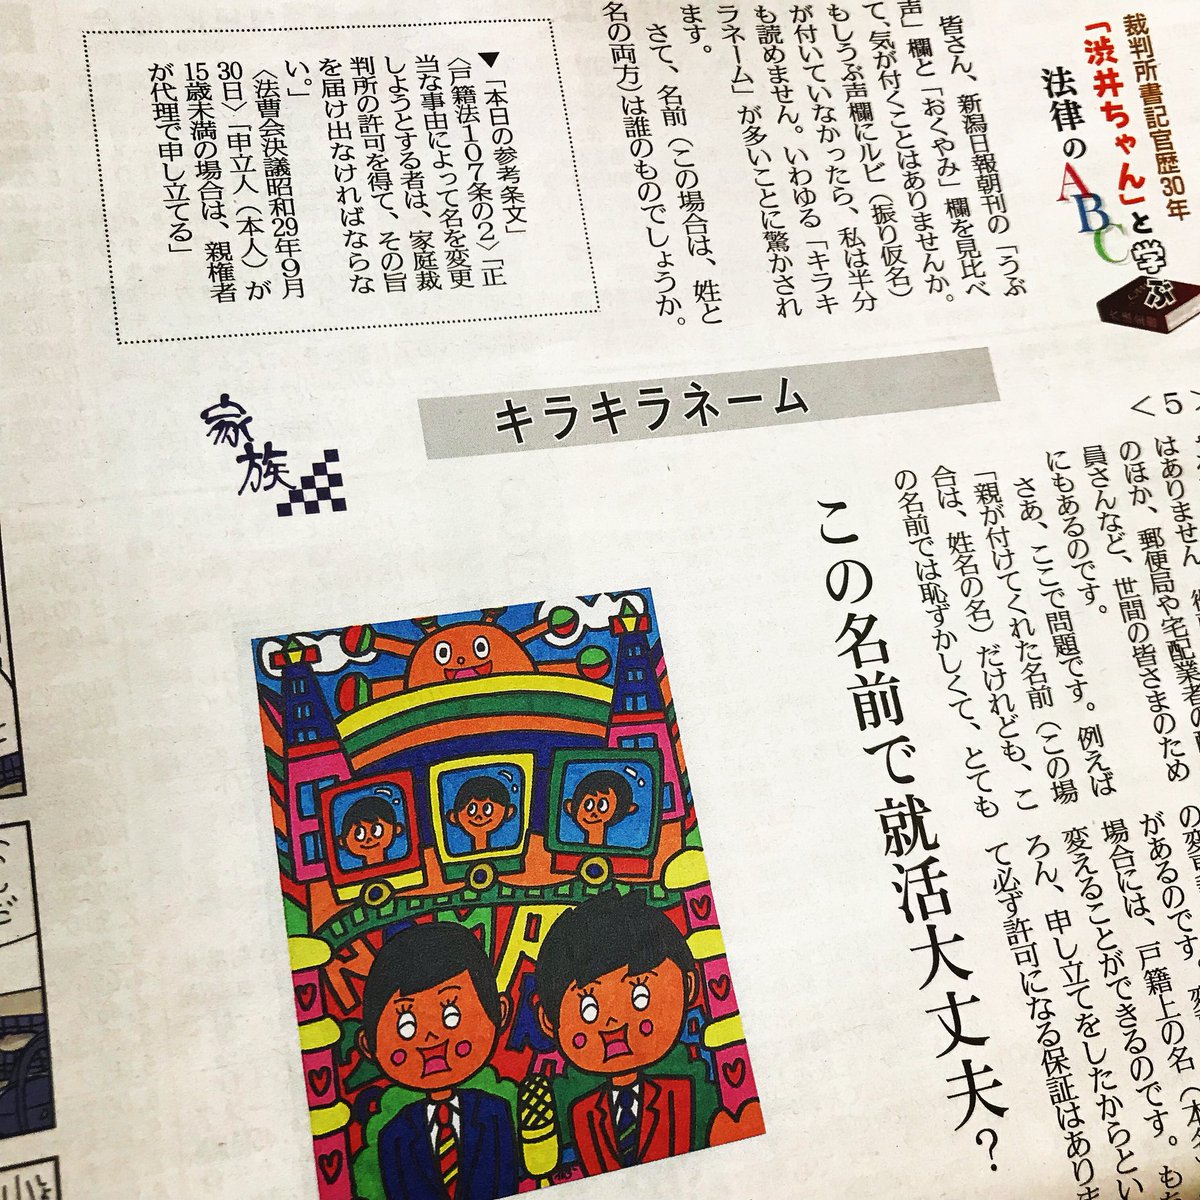 裁判所書記官歴30年
「渋井ちゃん」と学ぶ
法律のABC
皆さん、新潟日報朝刊の「うぶ
声」欄と「おくやみ」欄を見比べ
て、気が付くことはありませんか。
もしうぶ声欄にルビ（振り仮名）
が付いていなかったら、私は半分
も読めません。いわゆる「キラキ
ラネーム」が多いことに驚かされ
ます。
さて、名前（この場合は、姓と
名の両方）は誰のものでしょうか。
▼「本日の参考条文」
〈戸籍法107条の2〉「正
当な事由によって名を変更
しようとする者は、家庭裁
判所の許可を得て、その旨
を届け出なければならな
い。」
〈法曹会決議昭和29年9月
30日〉「申立人（本人）が
15歳未満の場合は、親権者
が代理で申し立てる」
キラキラネーム
家族
＜5＞
はありません
のほか、郵便局や宅配業者の配
員さんなど、世間の皆さまのため
にもあるのです。
さあ、ここで問題です。例えば
「親が付けてくれた名前（この場
合は、姓名の名）だけれども、こ
の名前では恥ずかしくて、とても
この名前で就活大丈夫?
があるのです。
場合には、戸籍上の名
変えることができるのです。も
ろん、申し立てをしたからとい
て必ず許可になる保証はありま